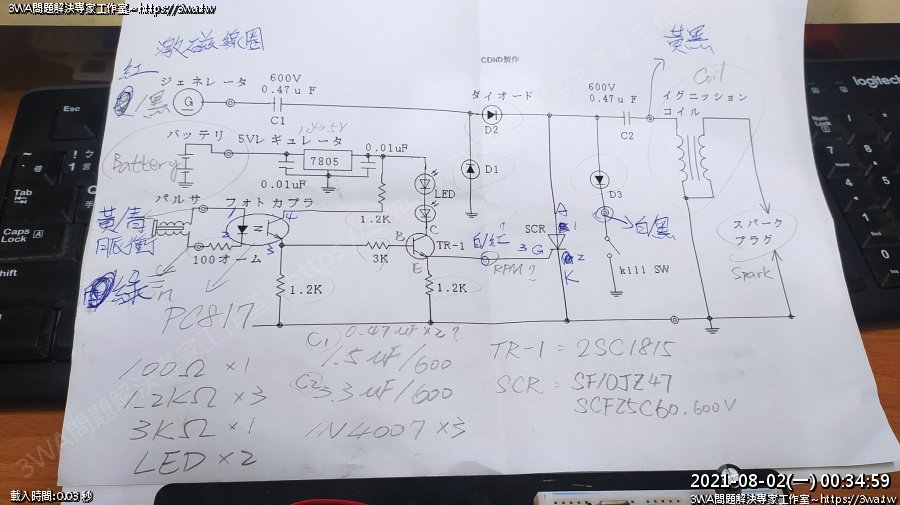 3WA問題解決專家工作室~https://3wa.tw
激磁線圈
黃黑
CDIの製作
紅
ジェネレータ
/黑
G
600V
0.47uF
C1
ダイオード
D2
600V
0.47uF
C2
Coil
イグニッション
コイル
12V→5V
バッテリ
5Vレギュレータ
Battery
7805
0.01uF
0.01uF
LED
D1
D3
パルサ
フォトカプラ
1.2K
黃/青
脈衝
1
4
2
3
C
B
TR-1
E
白/紅?
A
SCR
1
3 G
2
K
白黑
スパーク
プラグ
Spark
100オーム
3K
RPM?
kill SW
綠
in
1.2K
1.2K
PC817
C1
0.47uF×2?
1.5uF/600
C2
3.3uF/600
1N4007×3
100Ω×1
1.2KΩ×3
3KΩ×1
LED×2
TR-1=2SC1815
SCR: SF10JZ47
SCF25C60.600V
logitech
Esc
Tab
Caps
Lock
A
Shift
Num
Lock
3WA問題解決專家工作室
2021-08-02(一) 00:34:59
載入時間:0.03 秒
3WA問題解決專家工作室~https://3wa.tw